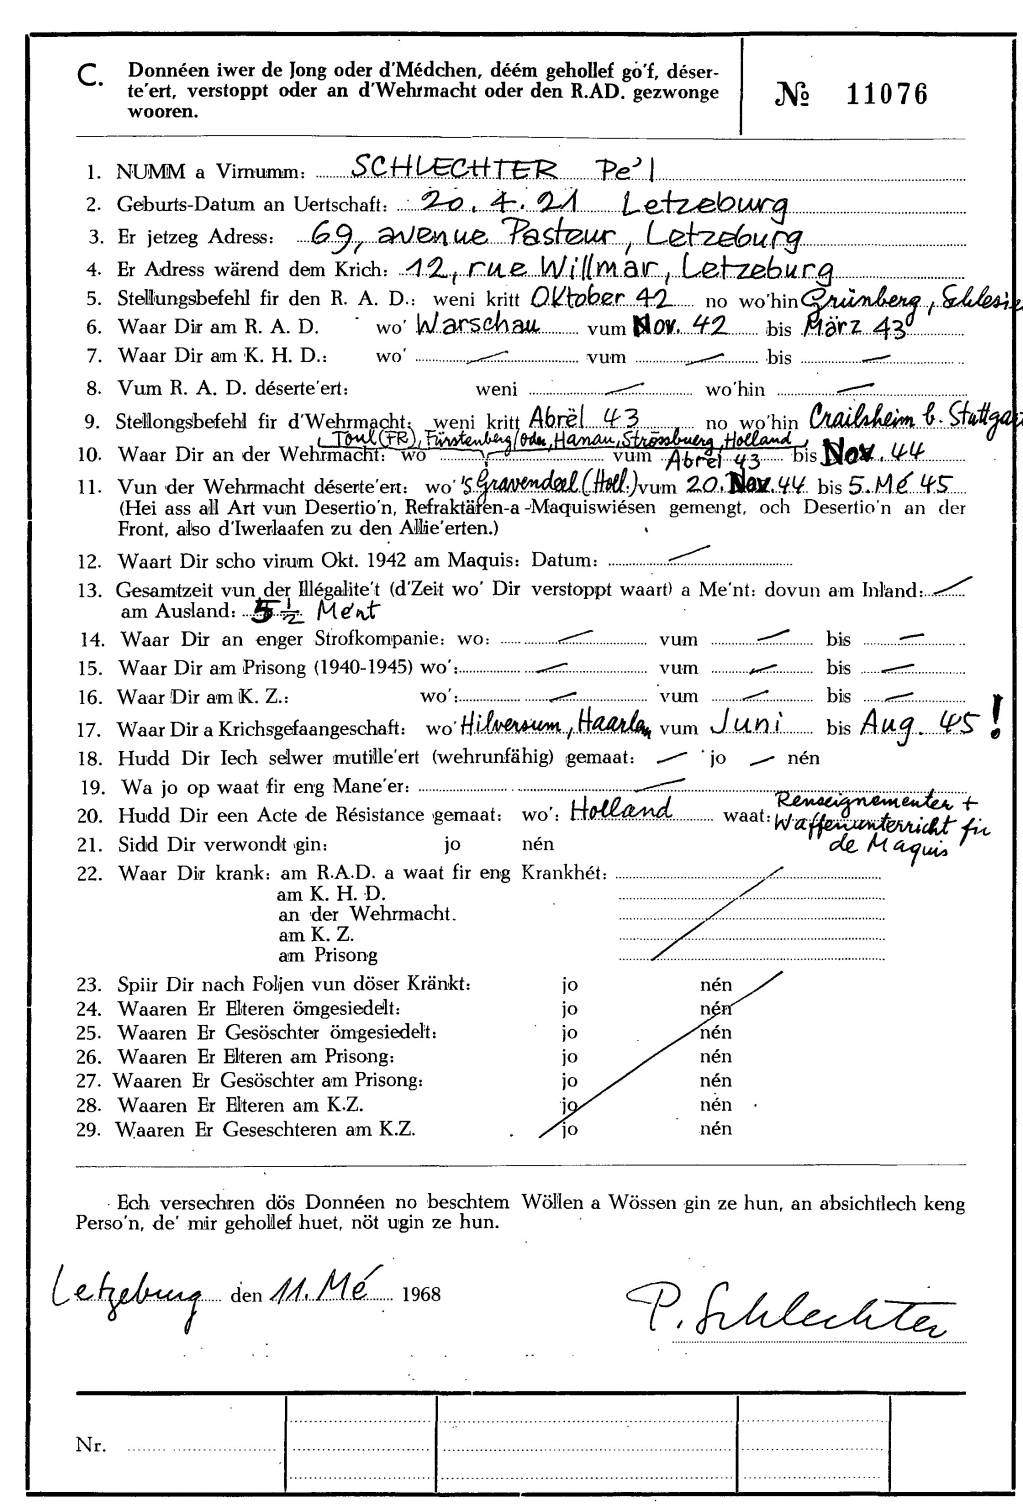 C. Donnéen iwer de Jong oder d'Médchen, déém gehollef go'f, déser-
te'ert, verstoppt oder an d'Wehrmacht oder den R.AD. gezwonge
wooren.
№ 11076
1. NUMM a Virnumm: SCHLECHTER Pe'l
2. Geburts-Datum an Uertschaft: 20.4.21 Letzeburg
3. Er jetzeg Adress: 69, avenue Pasteur, Letzeburg
4. Er Adress wärend dem Krich: 12, rue Willmar, Letzeburg
5. Stellungsbefehl fir den R. A. D.: weni kritt Oktober 42 no wo'hin Grünberg, Schlesien
6. Waar Dir am R. A. D. wo' Warschau vum Nov. 42 bis März 43
7. Waar Dir am K. H. D.: wo' — vum — bis —
8. Vum R. A. D. déserte'ert: weni — wo'hin —
9. Stellongsbefehl fir d'Wehrmacht: weni kritt Abrël 43 no wo'hin Crailsheim b. Stuttgart
Toul (FR), Fürstenberg/Oder, Hanau, Strossbuerg, Holland
10. Waar Dir an der Wehrmacht: wo vum Abrël 43 bis Nov. 44
11. Vun der Wehrmacht déserte'ert: wo' 's Gravendeel (Holl.) vum 20. Nov. 44 bis 5. Mé 45
(Hei ass all Art vun Desertio'n, Refraktären-a-Maquiswiésen gemengt, och Desertio'n an der
Front, also d'Iwerlaafen zu den Allie'erten.)
12. Waart Dir scho virum Okt. 1942 am Maquis: Datum: —
13. Gesamtzeit vun der Illégalite't (d'Zeit wo' Dir verstoppt waart) a Me'nt: dovun am Inland: —
am Ausland: 5 ½ Me'nt
14. Waar Dir an enger Strofkompanie: wo: — vum — bis —
15. Waar Dir am Prisong (1940-1945) wo': — vum — bis —
16. Waar Dir am K. Z.: wo': — vum — bis —
17. Waar Dir a Krichsgefaangeschaft: wo' Hilversum, Haarlem vum Juni bis Aug. 45 !
18. Hudd Dir Iech selwer mutille'ert (wehrunfähig) gemaat: — jo — nén
19. Wa jo op waat fir eng Mane'er: —
20. Hudd Dir een Acte de Résistance gemaat: wo': Holland waat: Renseignementer +
Waffenunterricht fir
de Maquis
21. Sidd Dir verwondt gin: jo nén
22. Waar Dir krank: am R.A.D. a waat fir eng Krankhét:
am K. H. D.
an der Wehrmacht.
am K. Z.
am Prisong
23. Spiir Dir nach Foljen vun döser Kränkt: jo nén
24. Waaren Er Elteren ömgesiedelt: jo nén
25. Waaren Er Gesöschter ömgesiedelt: jo nén
26. Waaren Er Elteren am Prisong: jo nén
27. Waaren Er Gesöschter am Prisong: jo nén
28. Waaren Er Elteren am K.Z. jo nén
29. Waaren Er Geseschteren am K.Z. jo nén
Ech versechren dös Donnéen no beschtem Wöllen a Wössen gin ze hun, an absichtlech keng
Perso'n, de' mir gehollef huet, nöt ugin ze hun.
Letzeburg den 11. Mé 1968
P. Schlechter
Nr.